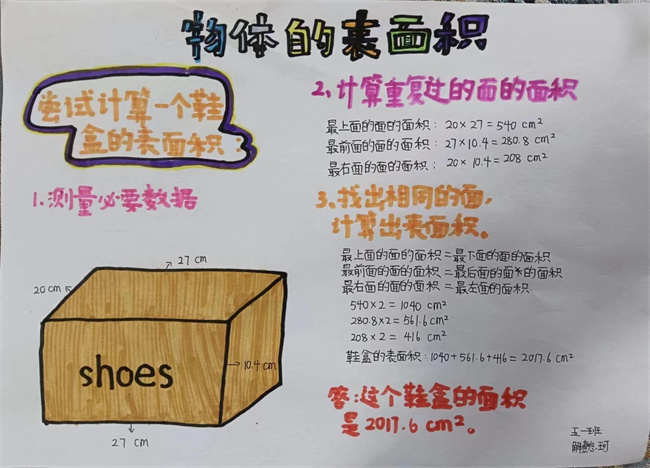 物体的表面积
尝试计算一个鞋
盒的表面积:
1、测量必要数据
27 cm
20 cm
10.4 cm
shoes
27 cm
2、计算重复过的面的面积
最上面的面的面积: 20×27=540 cm²
最前面的面的面积: 27×10.4=280.8 cm²
最右面的面的面积: 20×10.4=208 cm²
3、找出相同的面,
计算出表面积。
最上面的面的面积=最下面的面的面积
最前面的面的面积=最后面的面的面积
最右面的面的面积=最左面的面积
540×2=1040 cm²
280.8×2=561.6cm²
208×2= 416 cm²
鞋盒的表面积: 1040+561.6+416= 2017.6 cm²
答:这个鞋盒的面积
是2017.6 cm²。
五一班